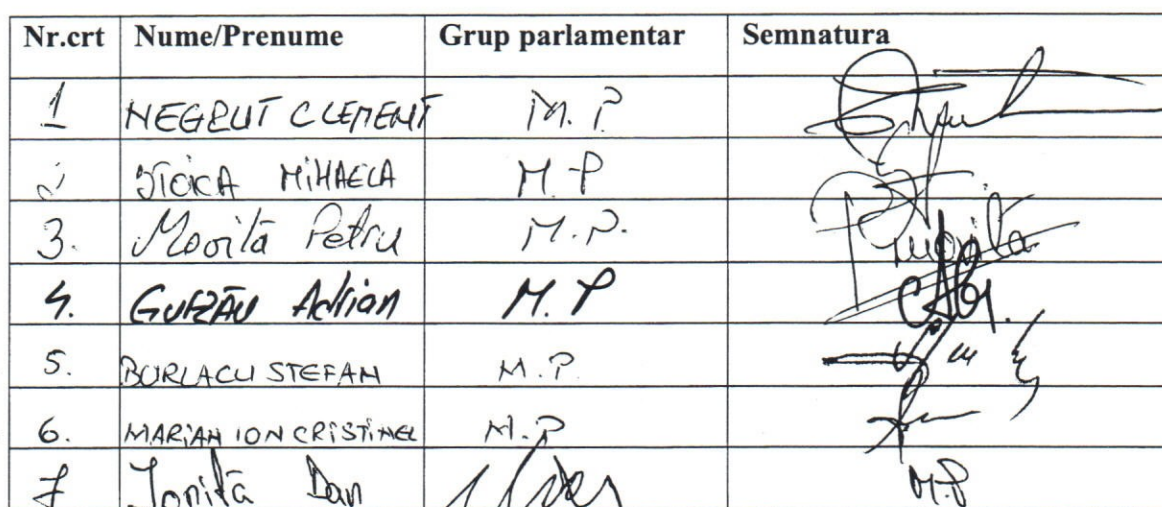 Nr.crt Nume/Prenume Grup parlamentar Semnatura
1 NEGRUT CLEMENT M.P
2 STOICA MIHAELA M.P
3. Movilă Petru M.P. PMovilă
4. GURZĂU Adrian M.P
5. BURLACU STEFAN M.P.
6. MARIAN ION CRISTINEL M.P
7 Ioniță Dan M.P